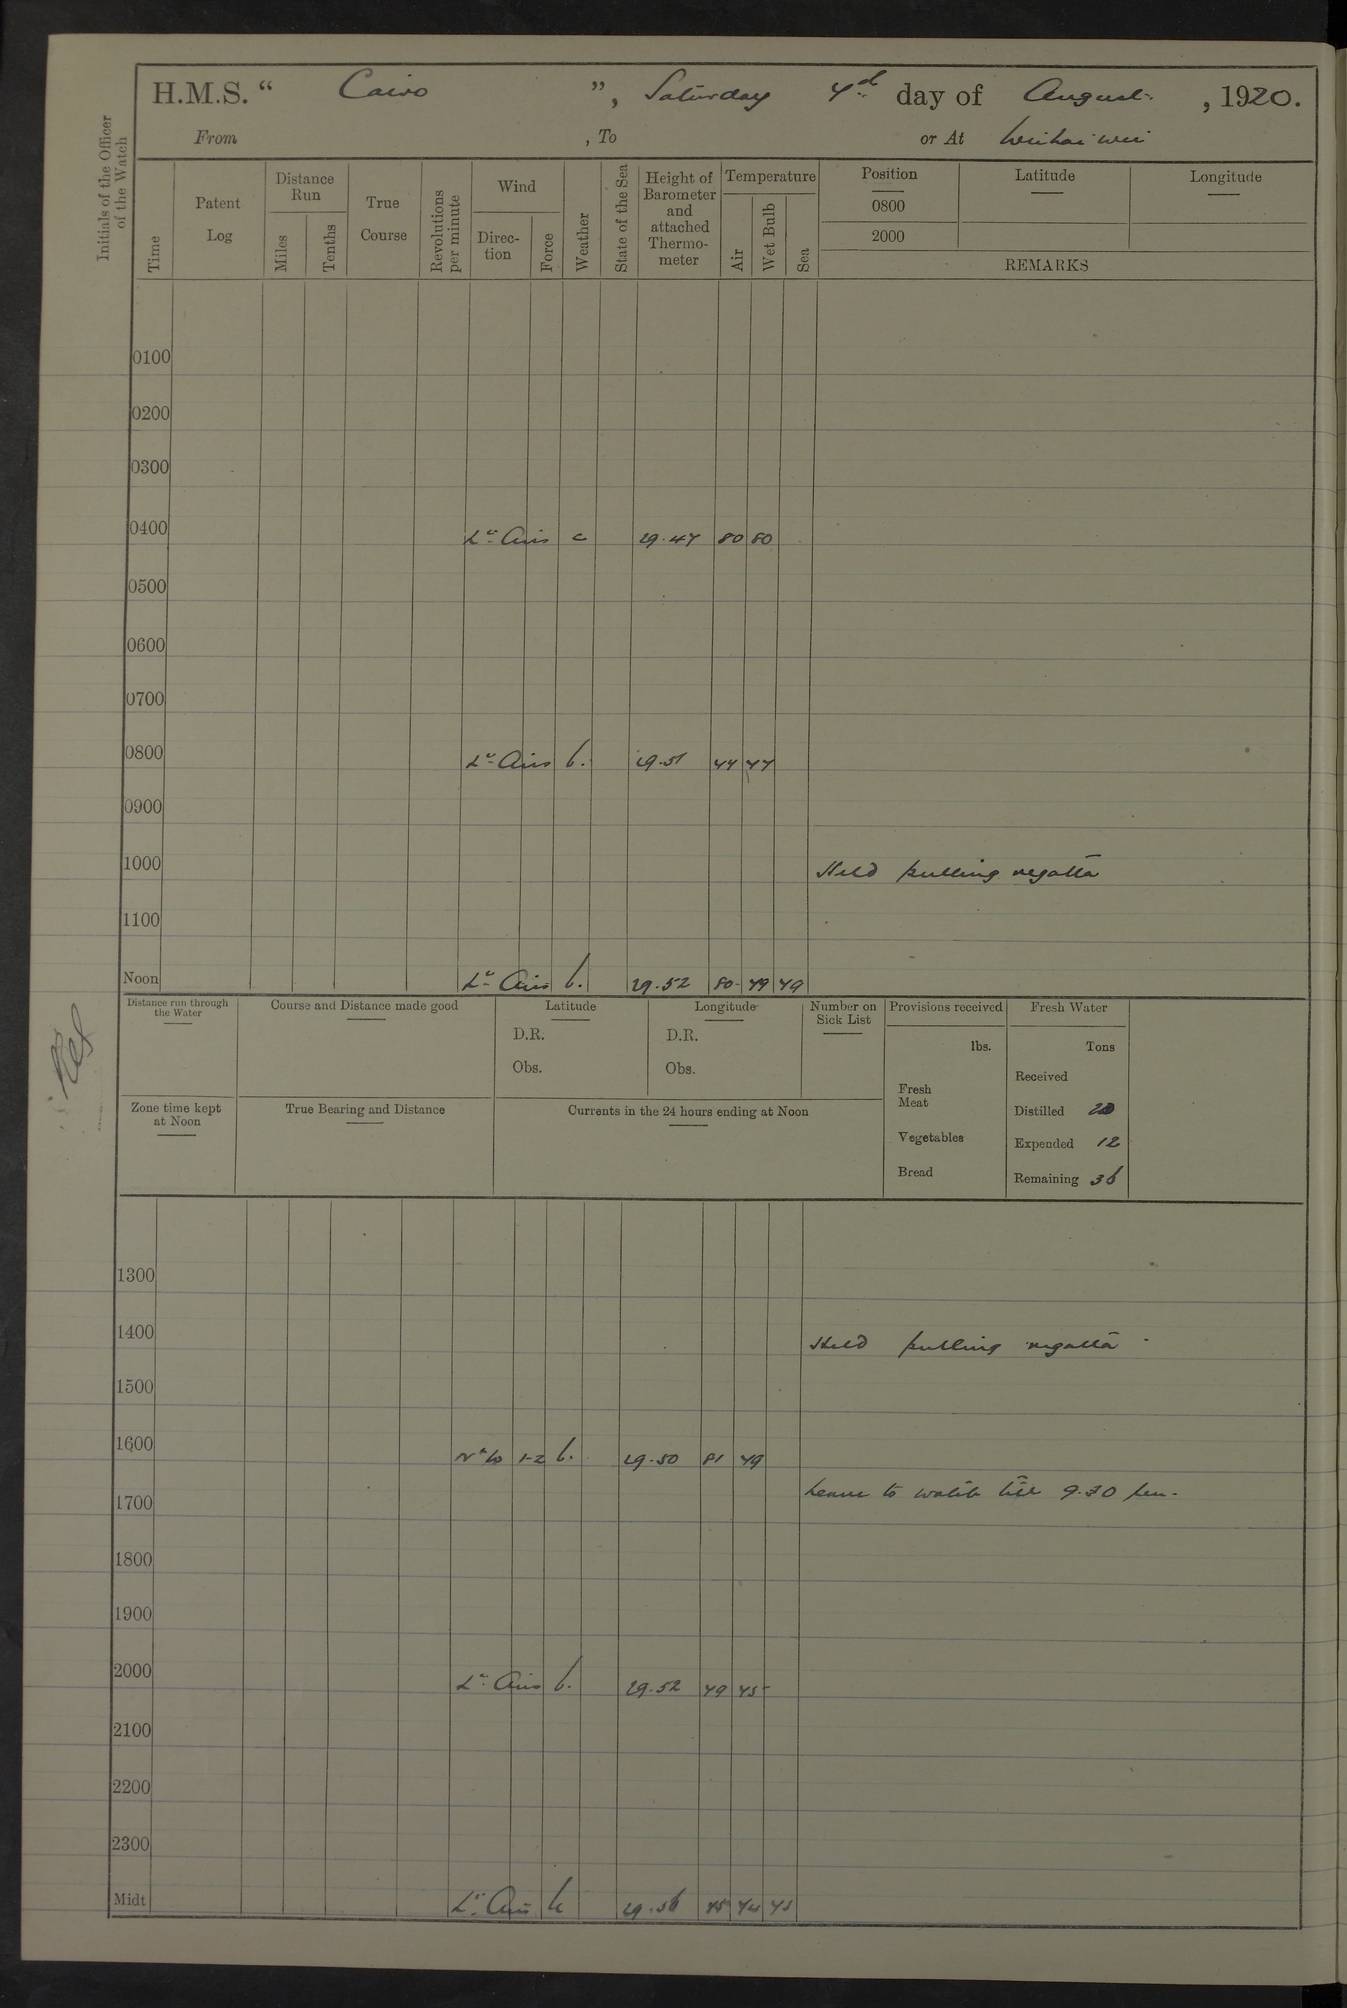 H.M.S. “ Cairo ”, Saturday 7th day of August, 1920.
From , To or At Wei hai wei
Initials of the Officer of the Watch
Time
Patent Log
Distance Run
Miles
Tenths
True Course
Revolutions per minute
Wind
Direc-tion
Force
Weather
State of the Sea
Height of Barometer and attached Thermo-meter
Temperature
Air
Wet Bulb
Sea
Position
0800
2000
Latitude
Longitude
REMARKS
0100
0200
0300
0400 Lt Airs c 29.47 80 80
0500
0600
0700
0800 Lt Airs b. 29.51 77 77
0900
1000 Held pulling regatta
1100
Noon Lt Airs b. 29.52 80 79 79
Distance run through the Water
Course and Distance made good
Latitude
D.R.
Obs.
Longitude
D.R.
Obs.
Number on Sick List
Provisions received
lbs.
Fresh Meat
Vegetables
Bread
Fresh Water
Tons
Received
Distilled 20
Expended 12
Remaining 36
Zone time kept at Noon
True Bearing and Distance
Currents in the 24 hours ending at Noon
1300
1400 Held pulling regatta.
1500
1600 1-2 b. 29.50 81 79
Leave to watch till 9.30 pm.
1700
1800
1900
2000 Lt Airs b. 29.52 79 75
2100
2200
2300
Midt Lt Airs 29.56 75 74 75